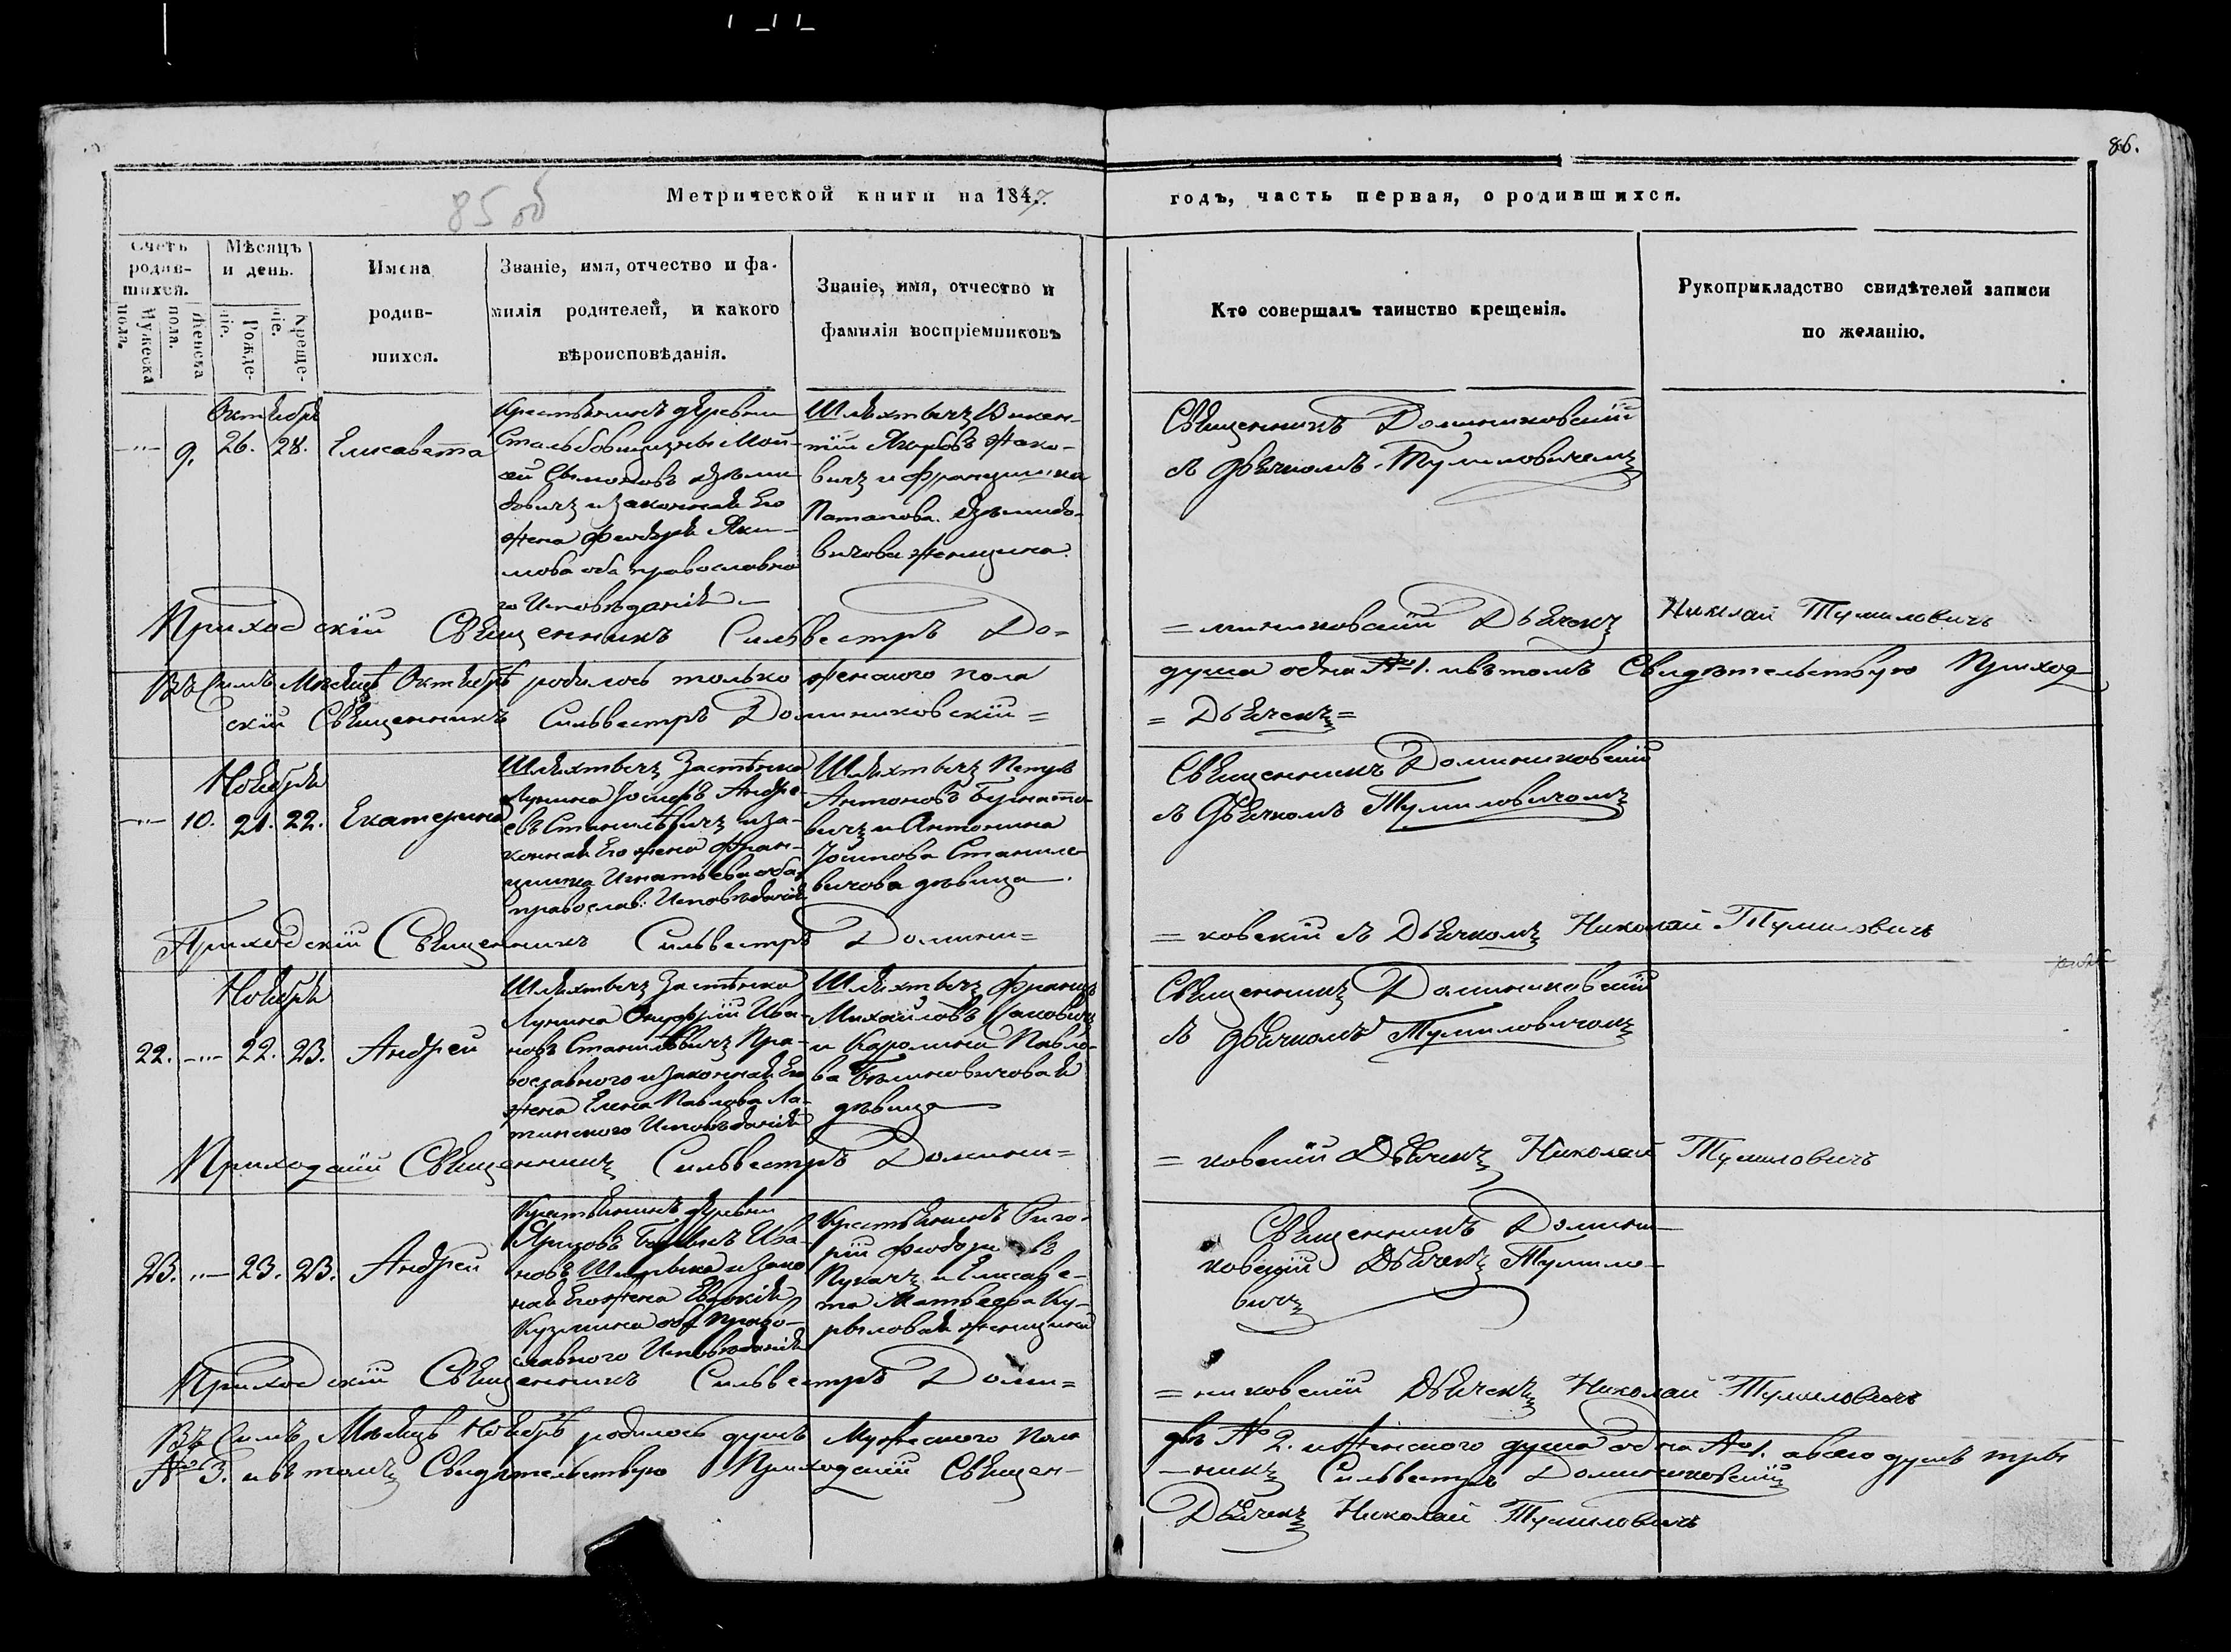 86.
85 об
Метрической книги на 1847. годъ, часть первая, о родившихся.
Счетъ родив-
шихся.
Мужеска пола.
Женска пола.
Мѣсяцъ и день.
Рожде-
ніе.
Креще-
ніе.
Имена
родив-
шихся.
Званіе, имя, отчество и фа-
милія родителей, и какого
вѣроисповѣданія.
Званіе, имя, отчество и
фамилія воспріемниковъ
Кто совершалъ таинство крещенія.
Рукоприкладство свидѣтелей записи
по желанію.
Октября
9. 26. 28. Елисавета
Крестьянинъ деревни
Мои-
сей Сымоновъ
довичъ и законная Его
жена Феодора Яки-
мова оба православна
го Исповѣданія
Шляхтичъ Викен-
тій Якубовъ Жако-
вичъ и Францишка
Потапова
вичова женщина.
Священникъ Доминиковскій
съ Дьячкомъ Тумиловичемъ
Приходскій Священникъ Сильвестръ До=
=миниковскій Дьячекъ Николай Тумиловичъ
Въ Семъ Мѣсяцѣ Октябрѣ родилось только женского пола душа одна № 1. и въ томъ Свидѣтельствую Приход-
скій Священникъ Сильвестръ Доминиковскій =
= Дьячекъ =
Ноября
10. 21. 22. Екатерина
Шляхтичъ Застѣнка
Лунина Іосифъ Андре-
евъ Станилевичъ и за-
конная Его жена Фран-
цишка Игнатьева оба
православ: Исповѣданія
Шляхтичъ Петръ
Антоновъ
вичъ и Антонина
Іосипова Станиле-
вичова дѣвица.
Священникъ Доминиковскій
съ Дьячкомъ Тумиловичомъ
Приходскій Священникъ Сильвестръ Домини=
=ковскій съ Дьячкомъ Николай Тумиловичъ
Ноября
22. 22. 23. Андрей
Шляхтичъ Застѣнка
Лунина Онуфрій Ива-
новъ Станилевичъ Пра-
вославного и законная Его
жена Елена Павлова Ла-
тинского Исповѣданія
Шляхтичъ Францъ
Михайловъ
и Каролина Павло-
ва
дѣвица
Священникъ Доминиковскій
съ Дьячкомъ Тумиловичомъ
Приходскій Священникъ Сильвестръ Домини=
=ковскій Дьячекъ Николай Тумиловичъ
23. 23. 23. Андрей
Крестьянинъ деревни
Ива-
новъ и закон
ная Его жена Евдокія
Кузмина оба Право-
славного Исповѣданія
Крестьянинъ Григо-
рій
и Елисаве-
та Матвеева Ку-
женщина
Священникъ Домини-
ковскій Дьячекъ Тумило-
вичъ
Приходскій Священникъ Сильвестръ Доми=
=никовскій Дьячекъ Николай Тумиловичъ
Въ Семъ Мѣсяцѣ Ноябрѣ родилось душъ Мужеского Пола двѣ № 2. и Женского душа одна № 1. а всего душъ три
№ 3. и въ томъ Свидѣтельствую Приходскій Священ-
-никъ Сильвестръ Доминиковскій
Дьячекъ Николай Тумиловичъ